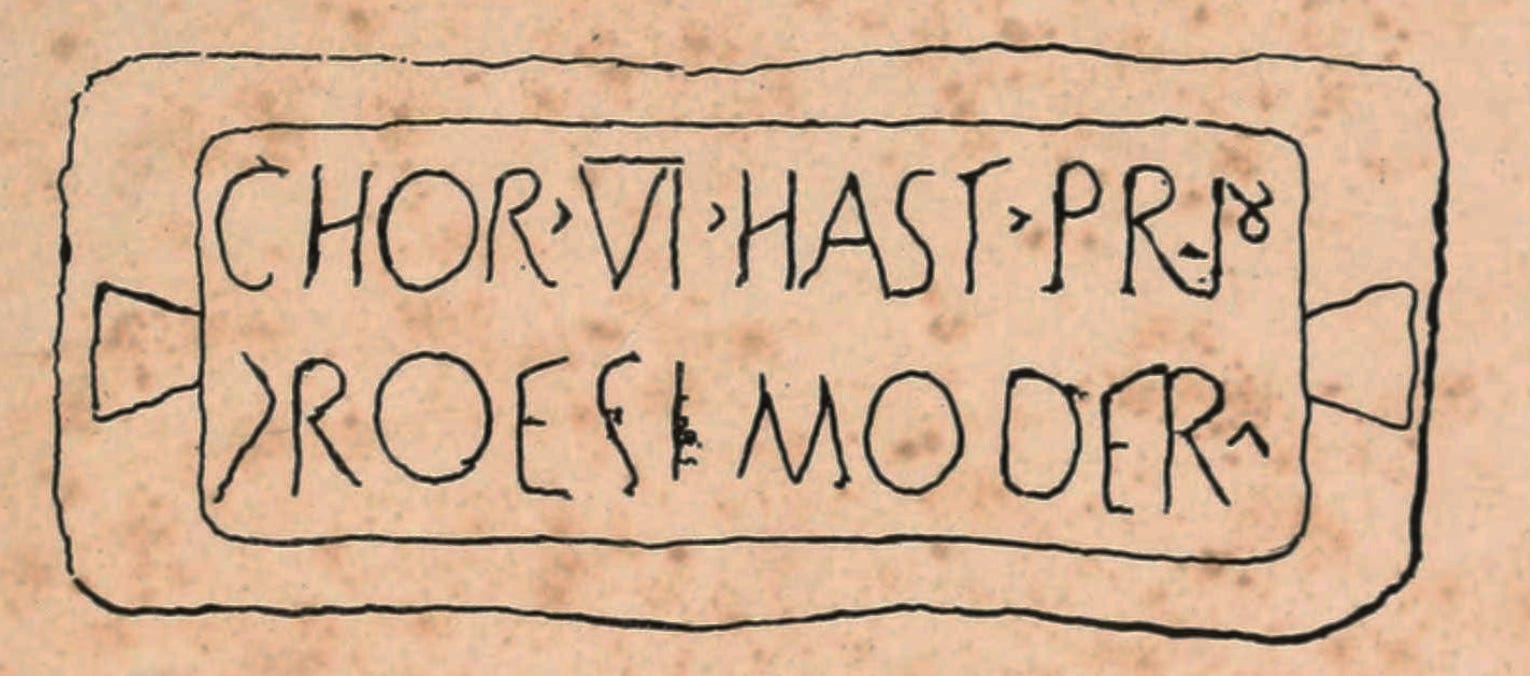 CHOR > V̅I̅ > HAST > PRI 8
> ROESI MODER ^